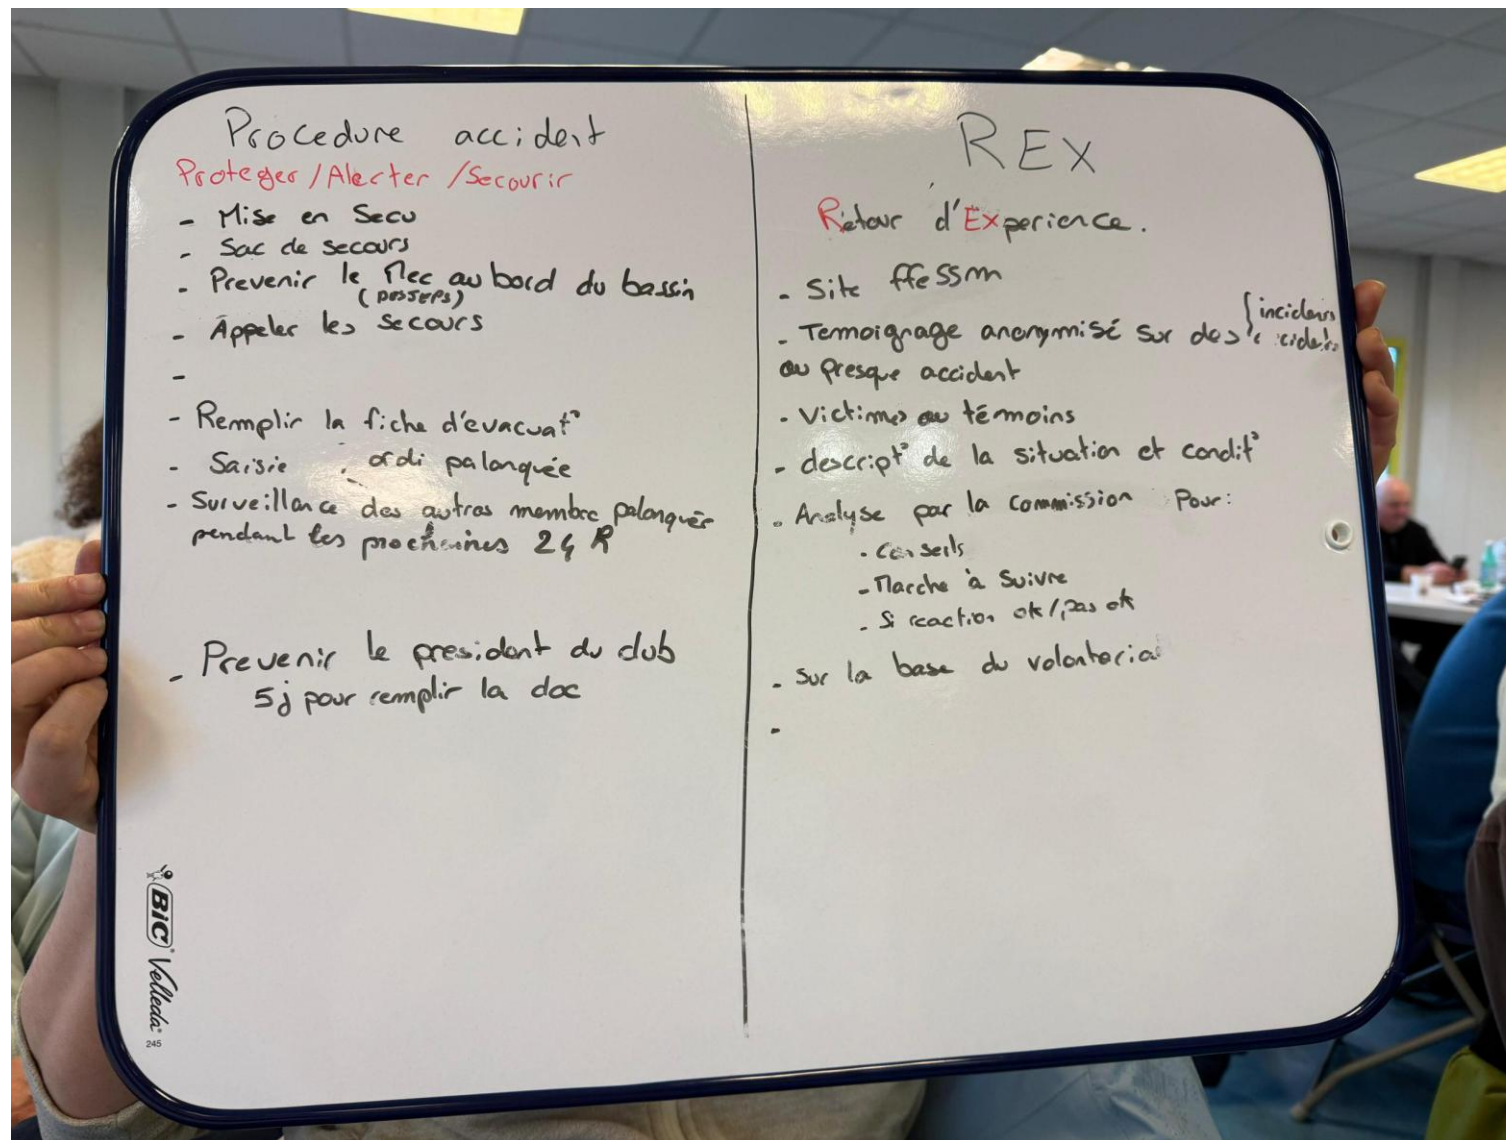 Procedure accident
Proteger / Alerter / Secourir
- Mise en Secu
- Sac de secours
- Prevenir le Mec au bord du bassin
- Appeler les secours
-
- Remplir la fiche d'évacuat°
- Saisie ordi palanquée
- Surveillance des autres membre palanquée
pendant les prochaines 24 R
- Prevenir le president du club
5j pour remplir la doc
REX
Retour d'Experience.
- Site ffessm
- Temoignage anonymisé sur des { incidents
ou presque accident
- Victimes ou témoins
- descript° de la situation et condit°
- Analyse par la commission Pour:
- Conseils
- Marche à Suivre
- Si reaction ok / pas ok
- Sur la base du volontaria
-
BiC Velleda
245